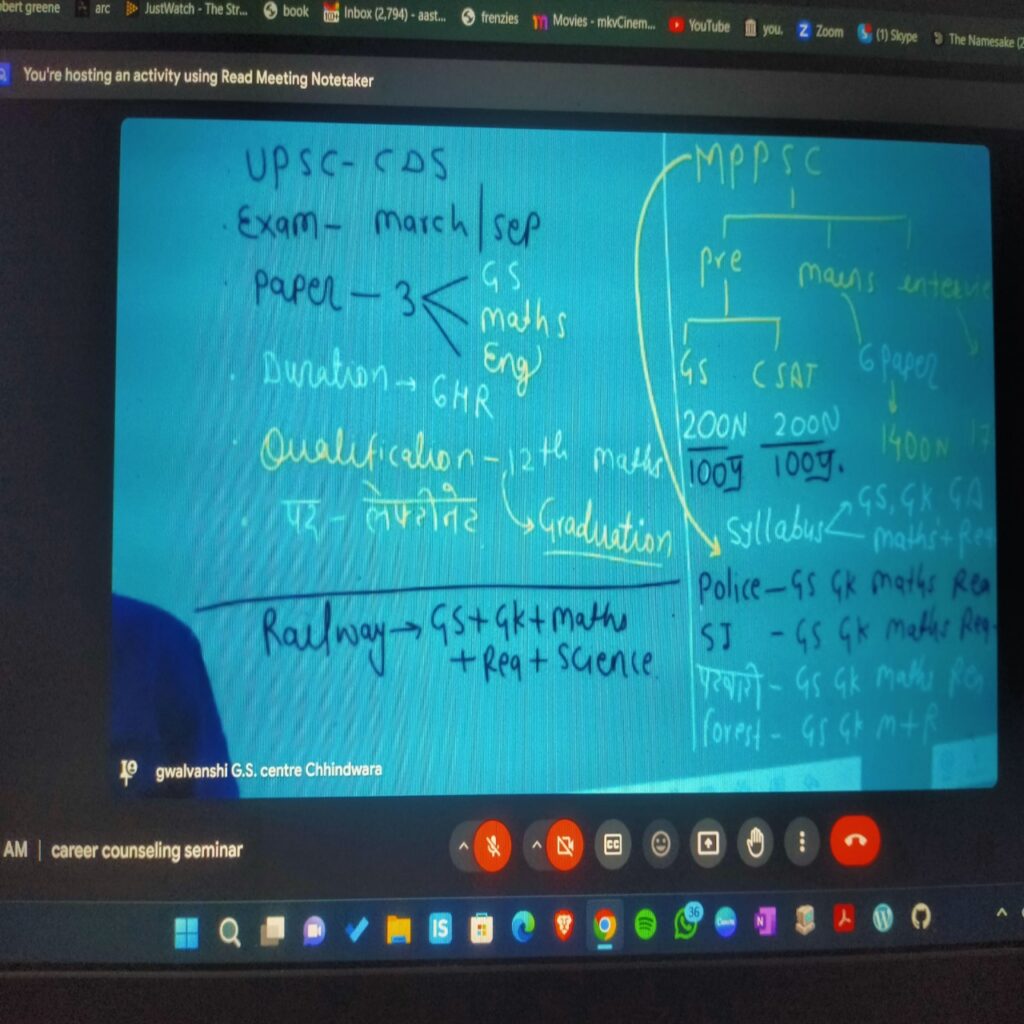 bert greene arc JustWatch - The Str... book Inbox (2,794) - aast... frenzies Movies - mkvCinem... YouTube you. Zoom (1) Skype The Namesake
You're hosting an activity using Read Meeting Notetaker
UPSC- CDS
Exam- march | sep
Paper - 3
GS
maths
Eng
Duration → 6HR
Qualification - 12th maths
→ Graduation
पद -
Railway → GS+GK+maths
+Req + Science
MPPSC
Pre mains
GS CSAT 6 Paper
200N 200N 1400N
100g 100g.
Syllabus GS, GK GA
maths+Req
Police - GS GK maths Rea
SI - GS GK maths Req
पटवारी - GS GK maths Re
forest - GS GK M+R
gwalvanshi G.S. centre Chhindwara
AM | career counseling seminar
CC
IS
36